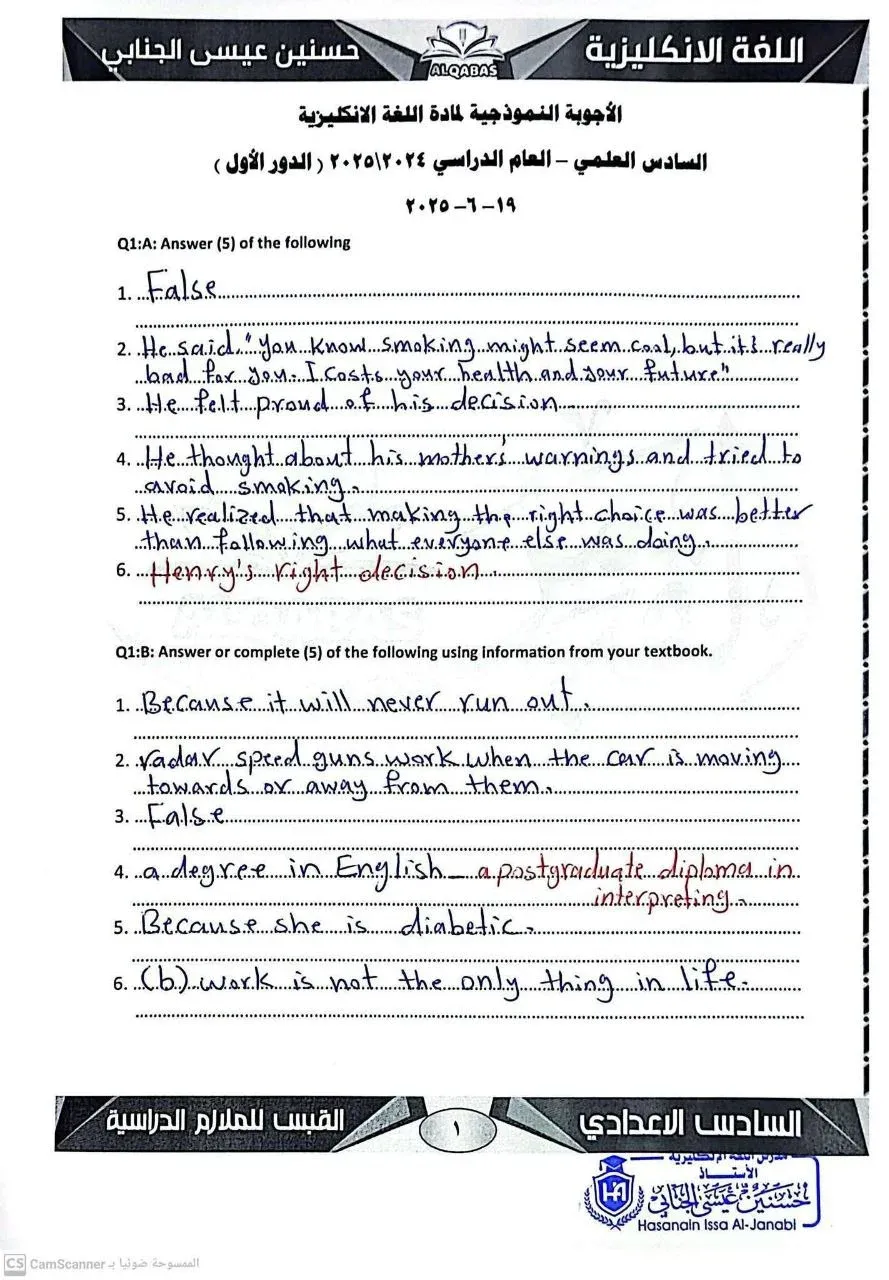 حسنين عيسى الجنابي
ALQABAS
اللغة الانكليزية
الأجوبة النموذجية لمادة اللغة الانكليزية
السادس العلمي – العام الدراسي ٢٠٢٤\٢٠٢٥ ( الدور الأول )
١٩ – ٦ – ٢٠٢٥
Q1:A: Answer (5) of the following
1. False
2. He said "you know smoking might seem cool, but it's really
bad for you. I costs your health and your future"
3. He felt proud of his decision
4. He thought about his mother's warnings and tried to
avoid smoking.
5. He realized that making the right choice was better
than following what everyone else was doing.
6. Henry's right decision.
Q1:B: Answer or complete (5) of the following using information from your textbook.
1. Because it will never run out.
2. radar speed guns work when the car is moving
towards or away from them.
3. False
4. a degree in English – a postgraduate diploma in
interpreting.
5. Because she is diabetic.
6. (b) work is not the only thing in life.
القبس للملازم الدراسية
١
السادس الاعدادي
مدرس اللغة الإنكليزية
الأستاذ
حسنين عيسى الجنابي
Hasanain Issa Al-Janabi
CS CamScanner الممسوحة ضوئيا بـ